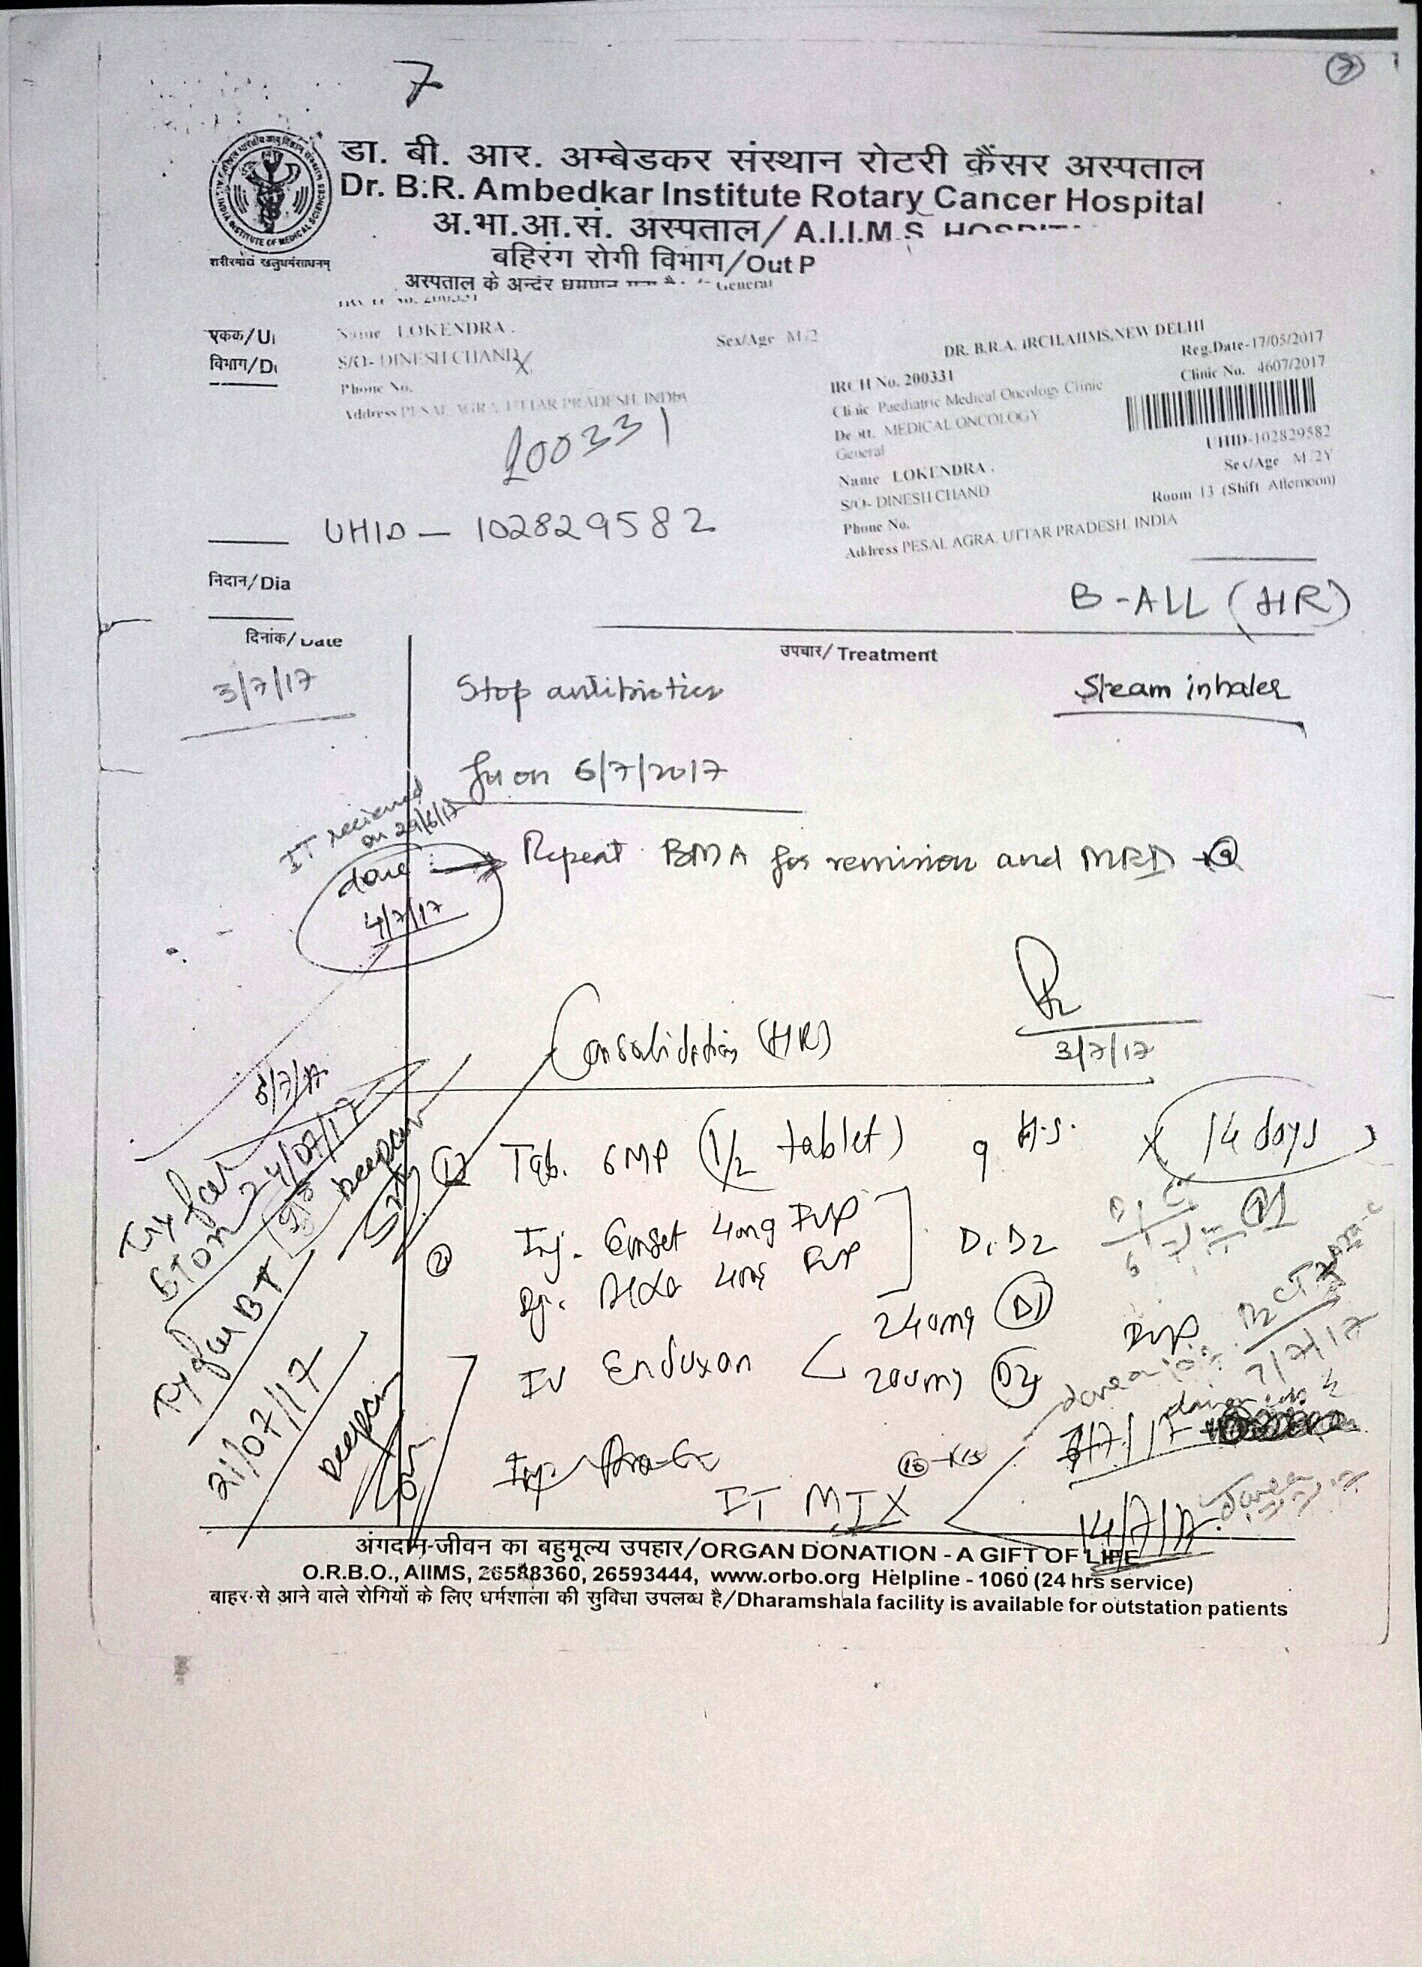 7
7
डा. बी. आर. अम्बेडकर संस्थान रोटरी कैंसर अस्पताल
Dr. B.R. Ambedkar Institute Rotary Cancer Hospital
अ.भा.आ.सं. अस्पताल/ A.I.I.M.S. HOSPITA
बहिरंग रोगी विभाग/Out P
अस्पताल के अन्दर धूम्रपान मना है
General
शरीरमाद्यं खलुधर्मसाधनम्
IRCH No. 200331
एकक/U
विभाग/D
Name LOKENDRA .
Sex/Age M/2
S/O- DINESH CHAND
Phone No.
Address PESAI, AGRA, UTTAR PRADESH, INDIA
200331
DR. B.R.A. IRCH,AIIMS,NEW DELHI
Reg.Date-17/05/2017
IRCH No. 200331
Clinic No. 4607/2017
Clinic Paediatric Medical Oncology Clinic
Deptt. MEDICAL ONCOLOGY
General
UHID-102829582
Name LOKENDRA .
Sex/Age M/2Y
S/O- DINESH CHAND
Room 13 (Shift Afternoon)
Phone No.
Address PESAI, AGRA, UTTAR PRADESH, INDIA
UHID - 102829582
निदान/Dia
B-ALL (HR)
दिनांक/Date
उपचार/Treatment
3/7/17
Stop antibiotics
Steam inhaler
fu on 6/7/2017
IT recieved
on 29/6/17
done
4/7/17
Repeat BMA for remission and MRD
3/7/17
Consolidation (HR)
5/7/17
① Tab. 6MP (1/2 tablet) q H.S. x 14 days
② Inj. Emset 4mg IVP
Inj. Dexa 4mg IVP
D1 D2
IV Enduxan < 240mg D1
200mg D2
IVP
7/7/17
IT MTX
14/7/17
Try for
BT on 24/07/17
Try for BT
21/07/17
अंगदान-जीवन का बहुमूल्य उपहार/ORGAN DONATION - A GIFT OF LIFE
O.R.B.O., AIIMS, 26588360, 26593444, www.orbo.org Helpline - 1060 (24 hrs service)
बाहर से आने वाले रोगियों के लिए धर्मशाला की सुविधा उपलब्ध है/Dharamshala facility is available for outstation patients